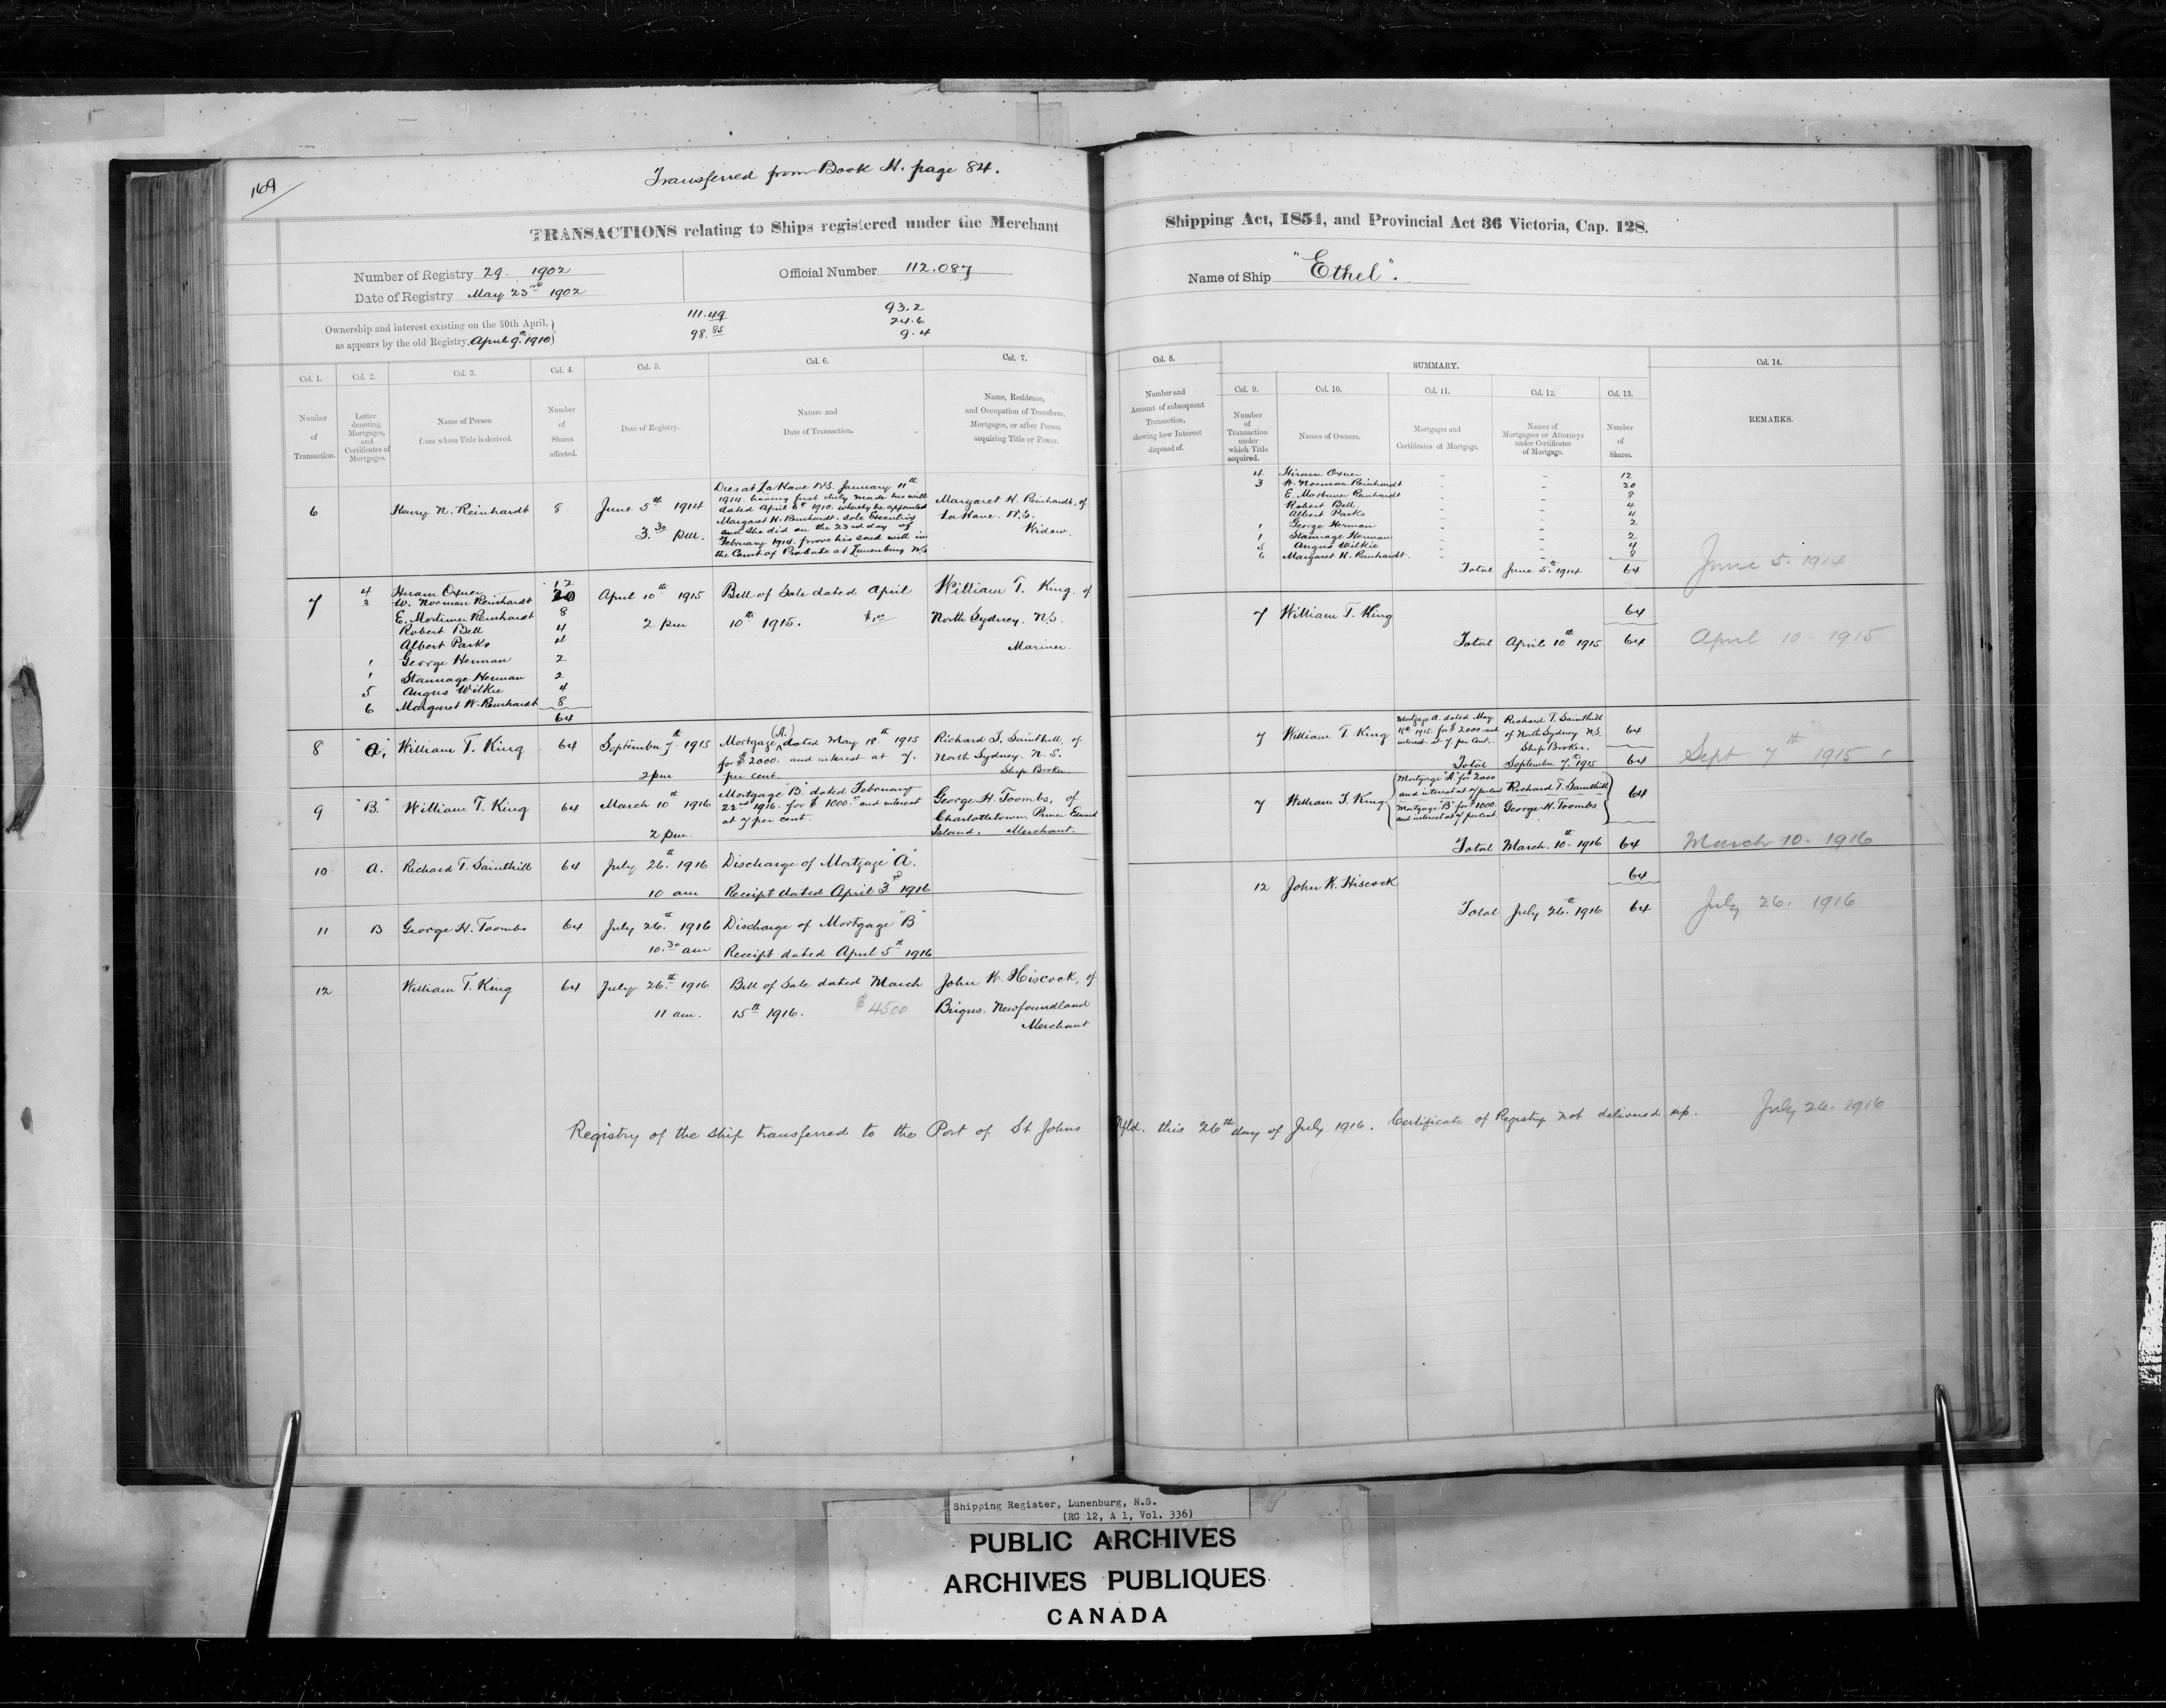 169
Transferred from Book H. page 84.
TRANSACTIONS relating to Ships registered under the Merchant Shipping Act, 1854, and Provincial Act 36 Victoria, Cap. 128.
Number of Registry 29. 1902
Date of Registry May 23rd 1902
Official Number 112.087
Name of Ship "Ethel".
Ownership and interest existing on the 30th April,
as appears by the old Registry, April 9th 1910
111.49
98.85
93.2
24.6
9.4
Col. 1.
Number
of
Transaction.
Col. 2.
Letter
denoting
Mortgages,
and
Certificates of
Mortgages.
Col. 3.
Name of Person
from whom Title is derived.
Col. 4.
Number
of
Shares
affected.
Col. 5.
Date of Registry.
Col. 6.
Nature and
Date of Transaction.
Col. 7.
Name, Residence,
and Occupation of Transferee,
Mortgagee, or other Person
acquiring Title or Power.
Col. 8.
Number and
Account of subsequent
Transaction,
showing how Interest
disposed of.
SUMMARY.
Col. 9.
Number
of
Transaction
under
which Title
acquired.
Col. 10.
Names of Owners.
Col. 11.
Mortgages and
Certificates of Mortgage.
Col. 12.
Names of
Mortgagees or Attorneys
under Certificates
of Mortgage.
Col. 13.
Number
of
Shares.
Col. 14.
REMARKS.
6 Henry N. Reinhardt 8 June 5th 1914
3.30 pm.
Dies at La Have N.S. January 11th
1914. having first duly made his will
dated April 6th 1910. whereby he appointed
Margaret H. Reinhardt. sole Executrix
and she did on the 23rd day of
February 1914. prove his said will in
the Court of Probate at Lunenburg N.S
Margaret H. Reinhardt, of
La Have. N.S.
Widow.
4 Hiram Oxner - - 12
3 W. Norman Reinhardt - - 20
E. Mortimer Reinhardt - - 8
Robert Bell. - - 4
Albert Parks - - 4
1 George Herman - - 2
1 Stannage Herman - - 2
5 Angus Wilkie - - 4
6 Margaret H. Reinhardt. - - 8
Total June 5th 1914 64
June 5. 1914
7 4 Hiram Oxner 12
3 W. Norman Reinhardt 20
E. Mortimer Reinhardt 8
Robert Bell 4
Albert Parks 4
1 George Herman 2
1 Stannage Herman 2
5 Angus Wilkie 4
6 Margaret H. Reinhardt 8
64
April 10th 1915
2 pm
Bill of Sale dated April
10th 1915. $1.00
William T. King of
North Sydney. N.S.
Mariner.
7 William T. King 64
Total April 10th 1915 64
April 10 - 1915
8 "A", William T. King 64 September 7th 1915
2 pm
Mortgage (A.) dated May 18th 1915
for $2000. and interest at 7.
per cent.
Richard T. Sainthill, of
North Sydney. N.S.
Ship Broker.
7 William T. King
Mortgage A. dated May
18th 1915. for $2000. and
interest at 7. per cent.
Richard T. Sainthill
of North Sydney N.S.
Ship Broker.
64
Total September 7th 1915 64
Sept 7th 1915
9 "B." William T. King 64 March 10th 1916
2 pm.
Mortgage "B." dated February
22nd 1916. for $1000. and interest
at 7 per cent.
George H. Toombs, of
Charlottetown. Prince Edward
Island. Merchant.
7 William T. King
Mortgage "A" for 2000
and interest at 7 per cent
Richard T. Sainthill
Mortgage "B" for $1000.
and interest at 7 per cent.
George H. Toombs
64
Total March 10. 1916 64
March 10. 1916
10 A. Richard T. Sainthill 64 July 26th 1916
10 am
Discharge of Mortgage "A".
Receipt dated April 3rd 1916
12 John H. Hiscock 64
Total July 26th 1916 64
July 26. 1916
11 B George H. Toombs 64 July 26th 1916
10.30 am
Discharge of Mortgage "B"
Receipt dated April 5th 1916
12 William T. King 64 July 26th 1916
11 am.
Bill of Sale dated March
15th 1916. $4500
John H. Hiscock, of
Brigus. Newfoundland
Merchant
Registry of the ship transferred to the Port of St Johns Nfld. this 26th day of July 1916. Certificate of Registry not delivered up. July 26. 1916
Shipping Register, Lunenburg, N.S.
(RG 12, A 1, Vol. 336)
PUBLIC ARCHIVES
ARCHIVES PUBLIQUES
CANADA